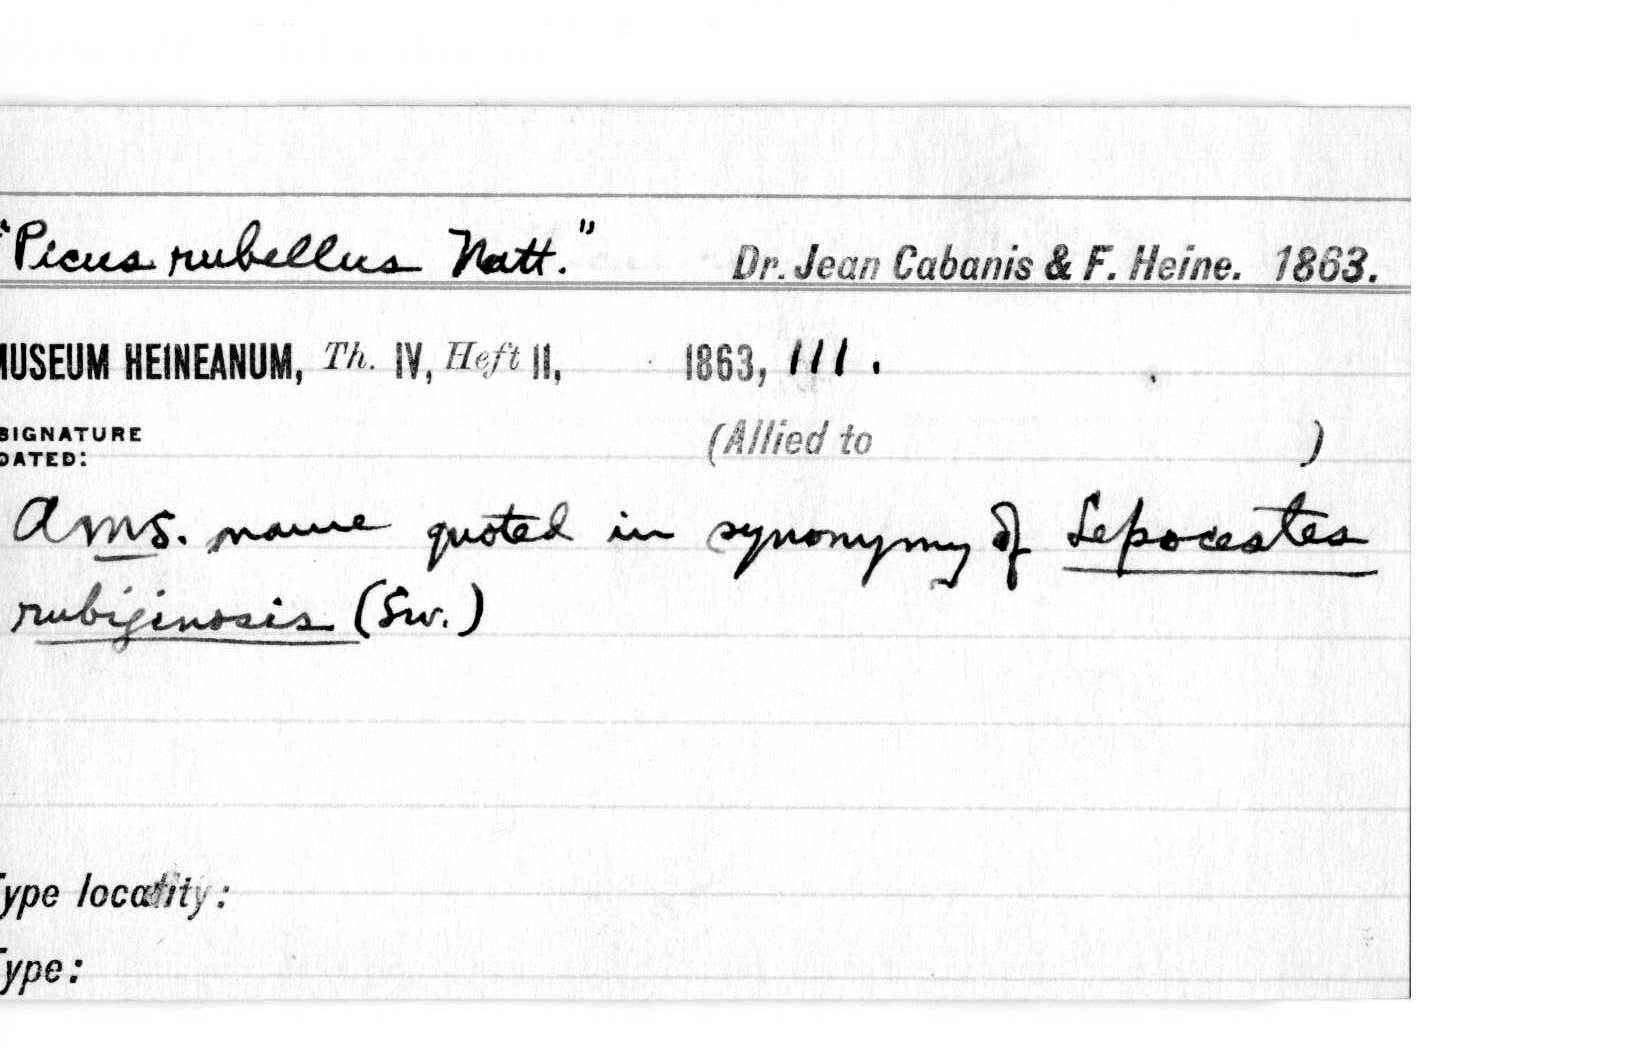 "Picus rubellus Natt." Dr. Jean Cabanis & F. Heine. 1863.
MUSEUM HEINEANUM, Th. IV, Heft II, 1863, 111.
SIGNATURE
DATED: (Allied to )
A ms. name quoted in synonymy of Lepocestes
rubiginosis (Sw.)
Type locality:
Type: